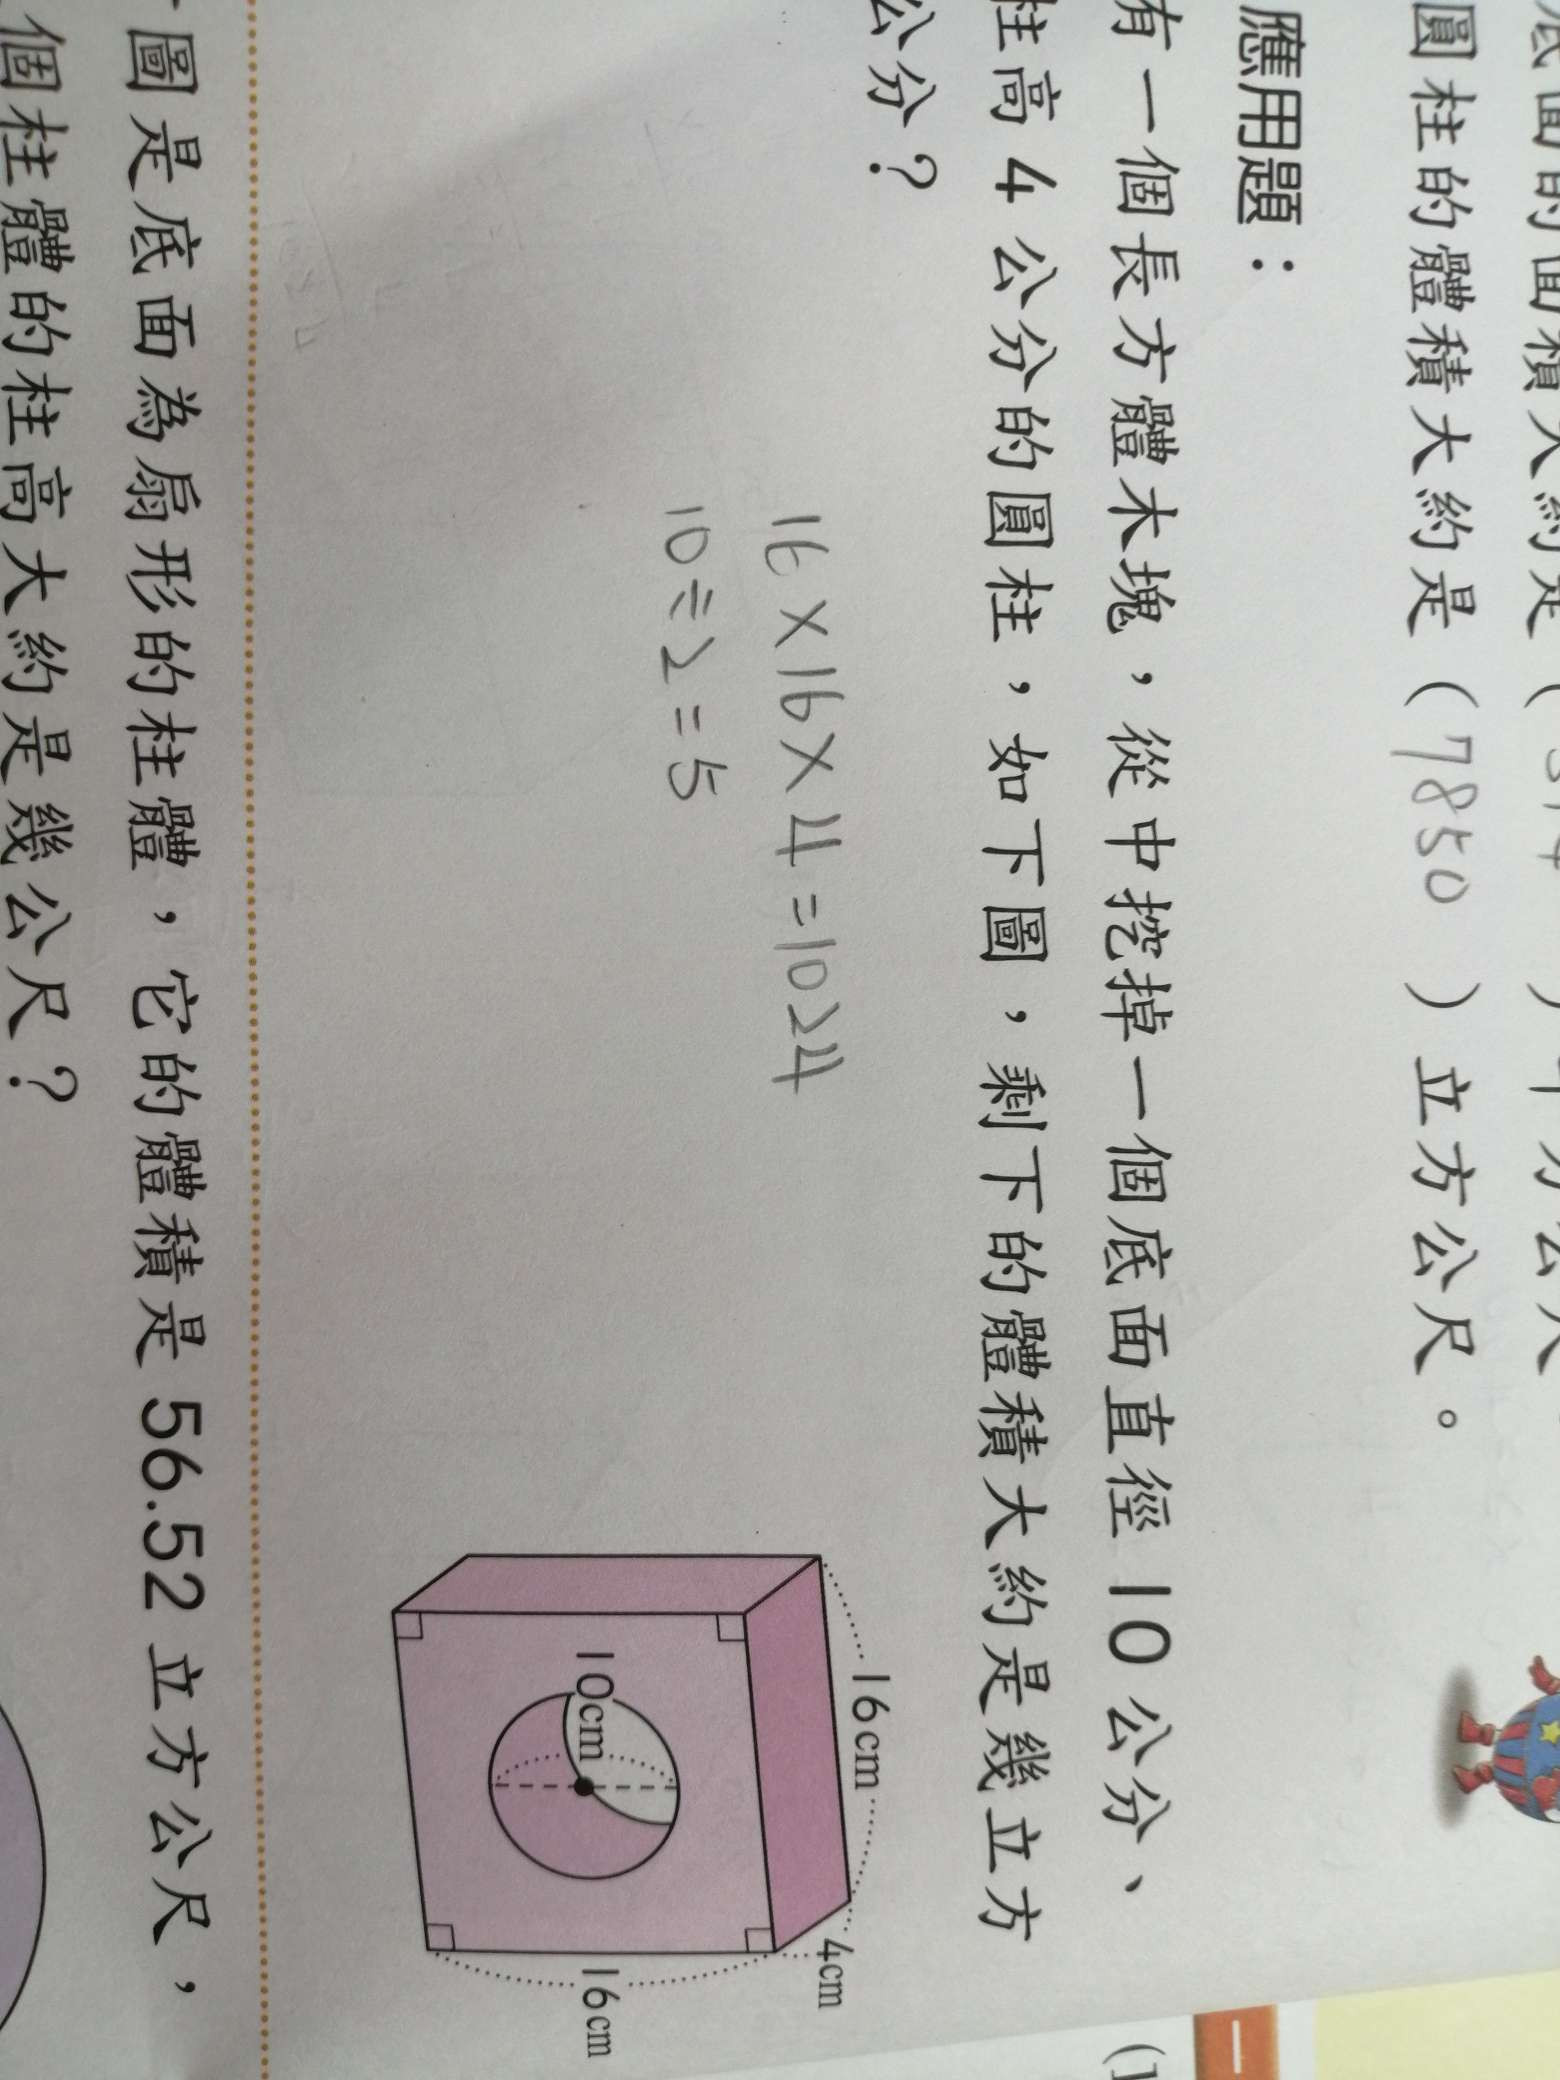 底面的面積大約是（314）平方公尺
圓柱的體積大約是（7850）立方公尺。
應用題：
有一個長方體木塊，從中挖掉一個底面直徑 10 公分、
柱高 4 公分的圓柱，如下圖，剩下的體積大約是幾立方
公分？
16×16×4=1024
10÷2=5
16cm
4cm
10cm
16cm
圖是底面為扇形的柱體，它的體積是 56.52 立方公尺，
個柱體的柱高大約是幾公尺？
一
(1